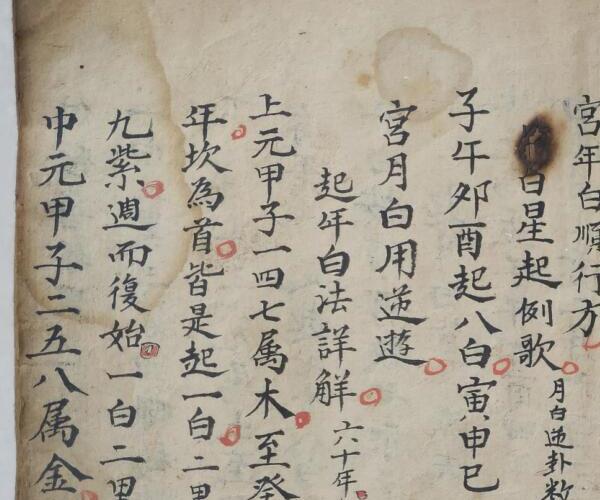 宮年白順行方
白星起例歌 月白逆卦数
子午夘酉起八白寅申巳
宮月白用逆遊
起年白法詳解 六十年
上元甲子一四七属木至癸
年坎為首皆是起一白二黑
九紫週而復始一白二黑
中元甲子二五八属金